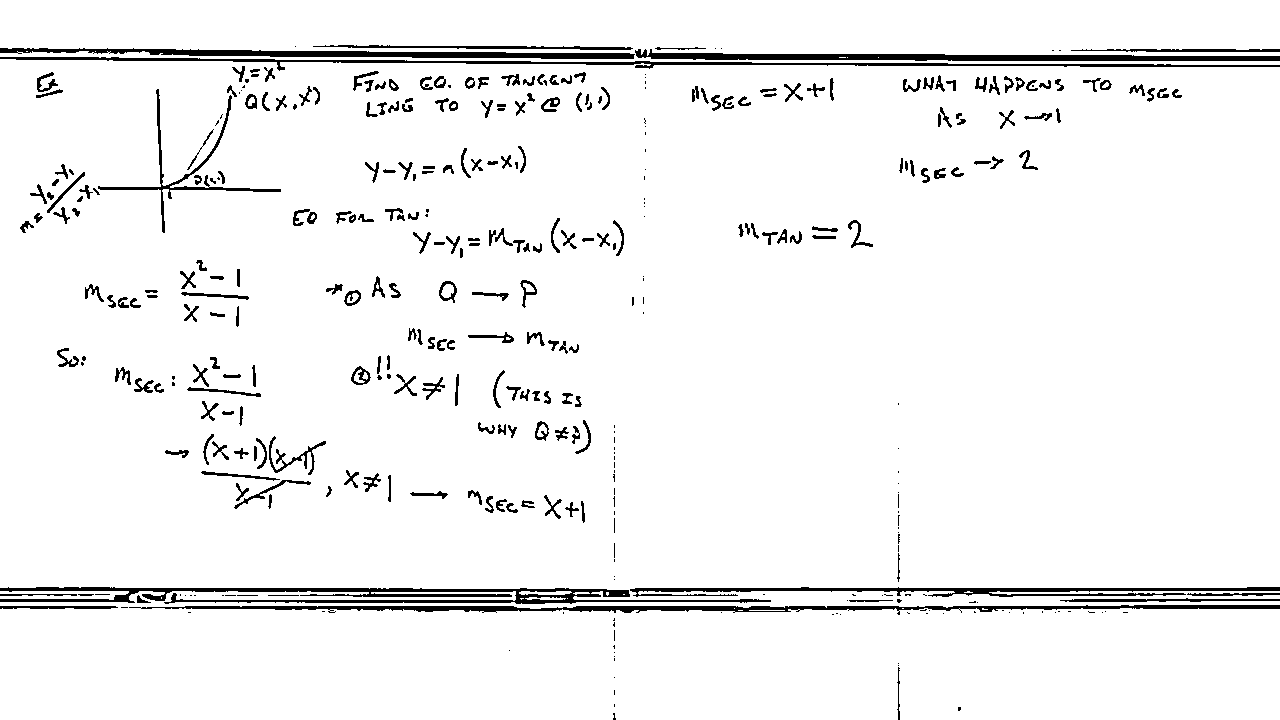 Ex
y=x²
Q(x,x²)
P(1,1)
1
m = y₂-y₁ / x₂-x₁
FIND EQ. OF TANGENT
LINE TO y=x² @ (1,1)
y-y₁=m(x-x₁)
EQ FOR TAN:
y-y₁=m_TAN(x-x₁)
m_SEC = x²-1 / x-1
→ ① As Q → P
m_SEC → m_TAN
So:
m_SEC: x²-1 / x-1
② !! x≠1 (THIS IS
WHY Q≠P)
→ (x+1)(x-1) / x-1 , x≠1 → m_SEC = x+1
m_SEC = x+1
WHAT HAPPENS TO m_SEC
As x→1
m_SEC → 2
m_TAN = 2